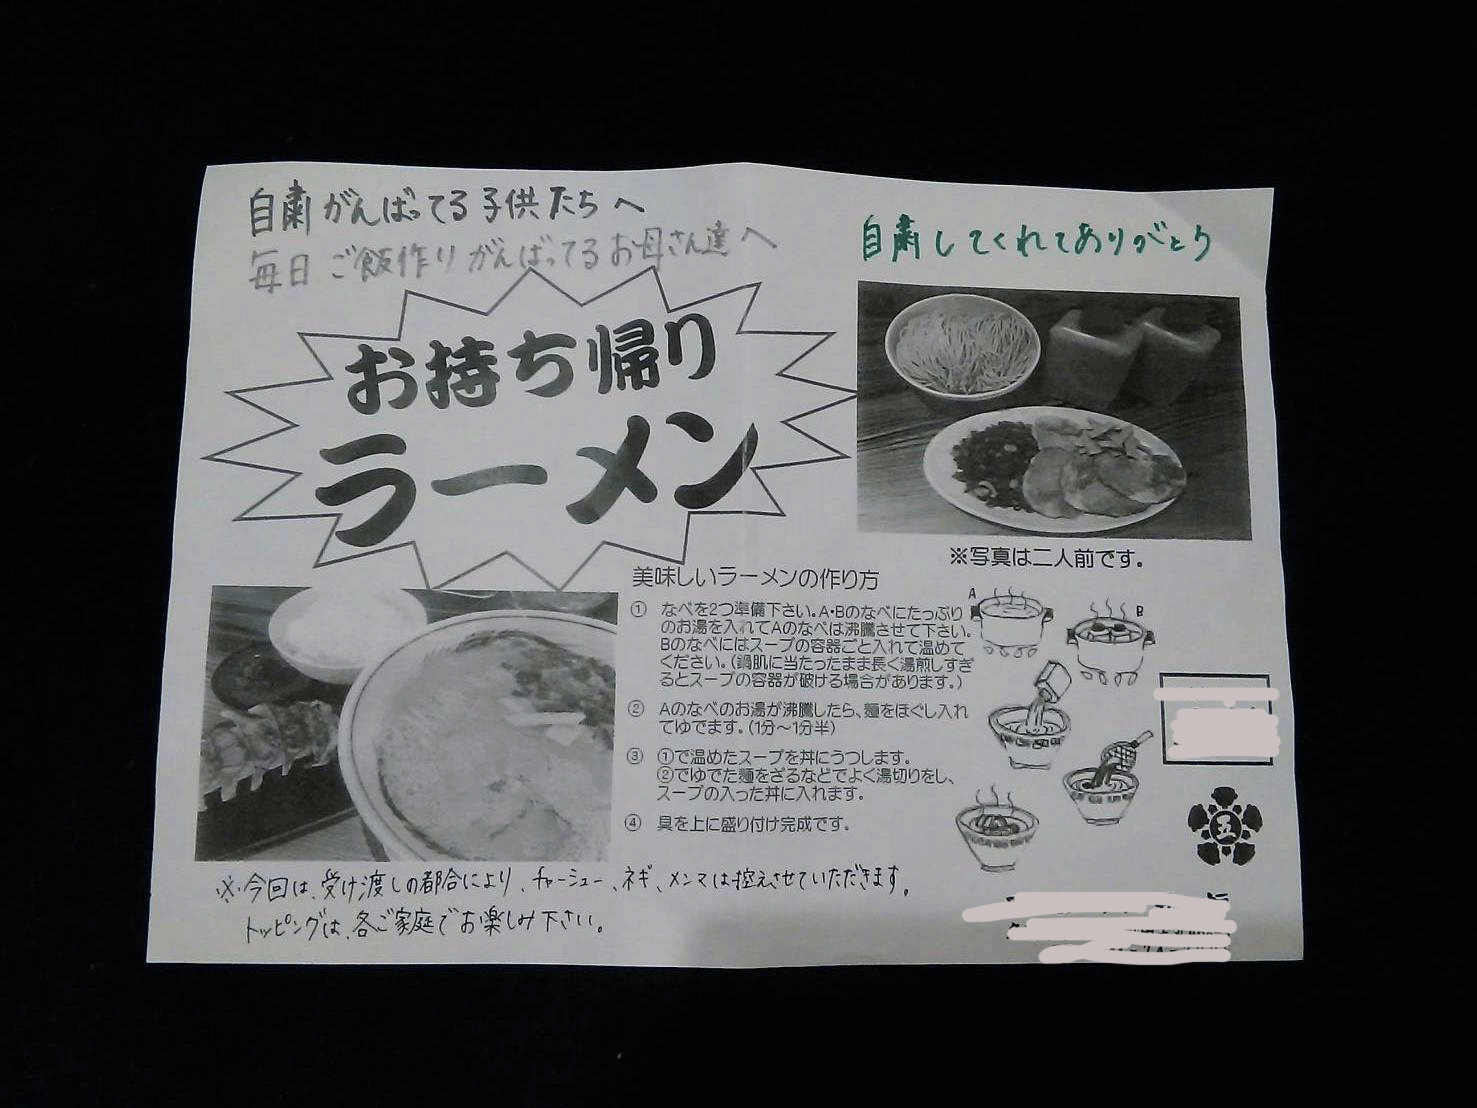 自粛がんばってる子供たちへ
毎日ご飯作りがんばってるお母さん達へ
自粛してくれてありがとう
お持ち帰り
ラーメン
※写真は二人前です。
美味しいラーメンの作り方
① なべを2つ準備下さい。A・Bのなべにたっぷり
のお湯を入れてAのなべは沸騰させて下さい。
Bのなべにはスープの容器ごと入れて温めて
ください。(鍋肌に当たったまま長く湯煎しすぎ
るとスープの容器が破ける場合があります。)
② Aのなべのお湯が沸騰したら、麺をほぐし入れ
てゆでます。(1分〜1分半)
③ ①で温めたスープを丼にうつします。
②でゆでた麺をざるなどでよく湯切りをし、
スープの入った丼に入れます。
④ 具を上に盛り付け完成です。
A
B
五
※今回は、受け渡しの都合により、チャーシュー、ネギ、メンマは控えさせていただきます。
トッピングは、各ご家庭でお楽しみ下さい。